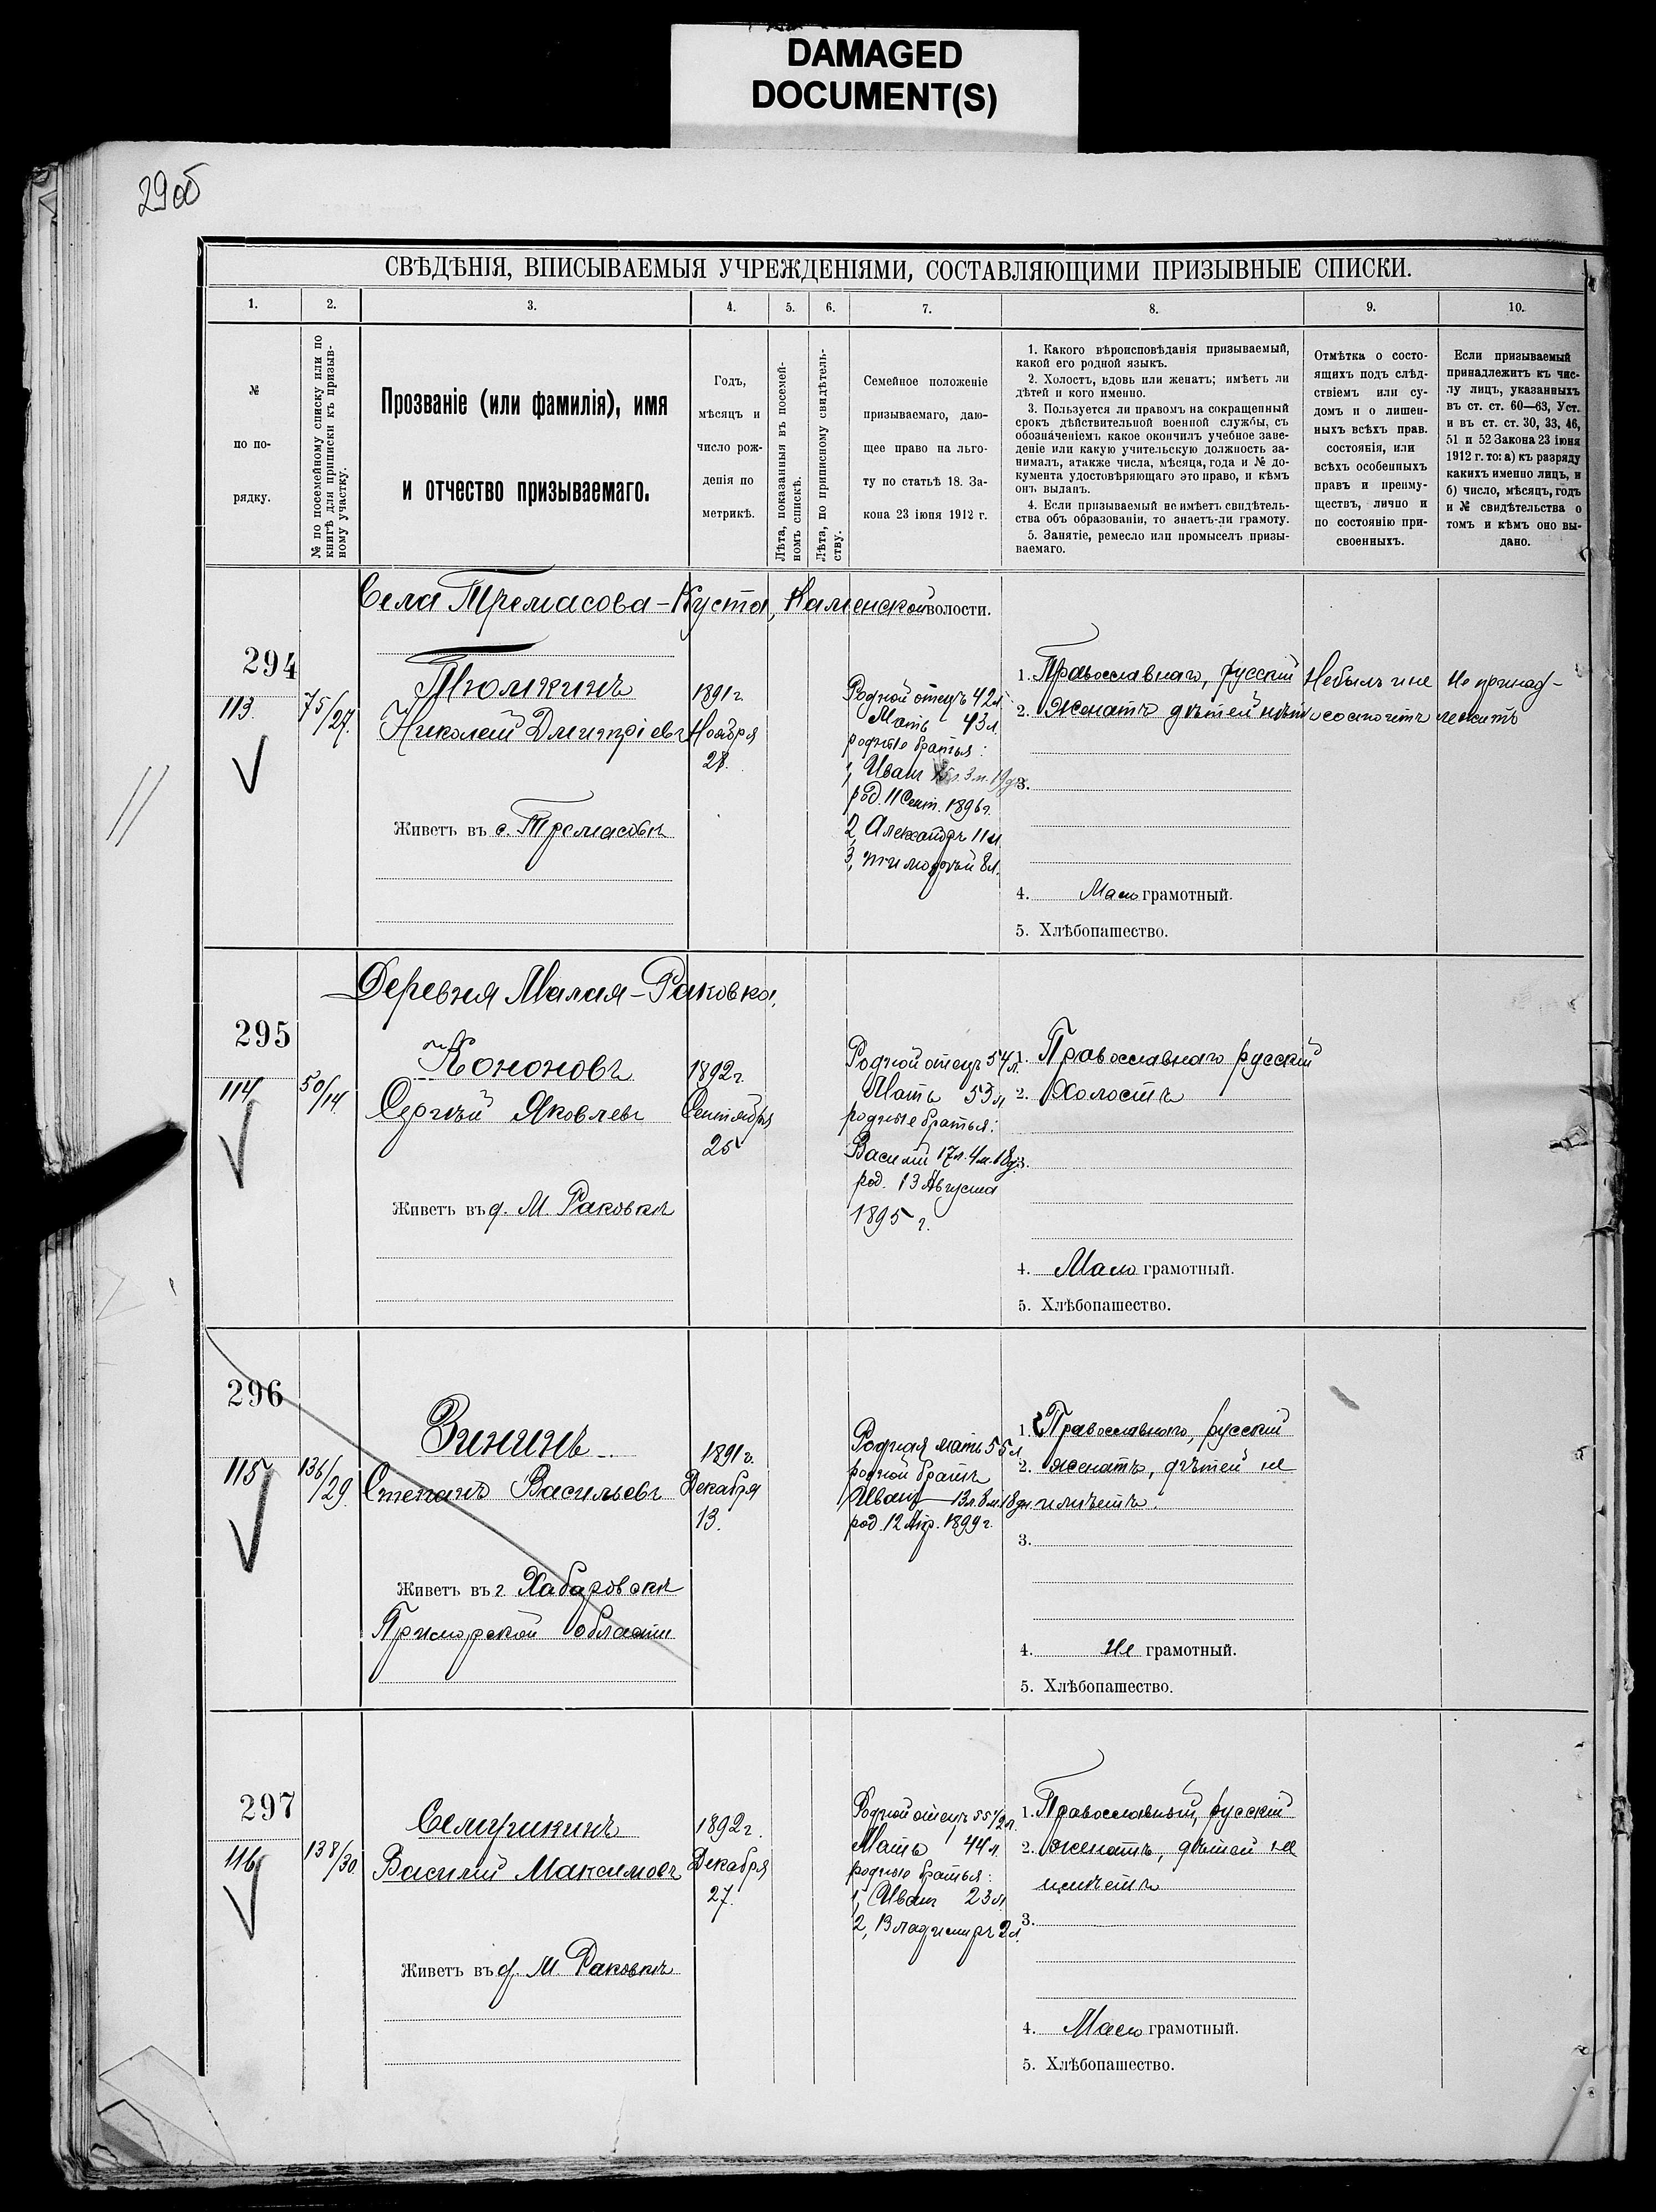 DAMAGED
DOCUMENT(S)
29 об
СВѢДѢНІЯ, ВПИСЫВАЕМЫЯ УЧРЕЖДЕНІЯМИ, СОСТАВЛЯЮЩИМИ ПРИЗЫВНЫЕ СПИСКИ.
1. 2. 3. 4. 5. 6. 7. 8. 9. 10.
№
по по-
рядку.
№ по посемейному списку или по
книгѣ для приписки къ призыв-
ному участку.
Прозваніе (или фамилія), имя
и отчество призываемаго.
Годъ,
мѣсяцъ и
число рож-
денія по
метрикѣ.
Лѣта, показанныя въ посемей-
номъ спискѣ.
Лѣта, по приписному свидѣтель-
ству.
Семейное положеніе
призываемаго, даю-
щее право на льго-
ту по статьѣ 18. За-
кона 23 іюня 1912 г.
1. Какого вѣроисповѣданія призываемый,
какой его родной языкъ.
2. Холостъ, вдовъ или женатъ; имѣетъ ли
дѣтей и кого именно.
3. Пользуется ли правомъ на сокращенный
срокъ дѣйствительной военной службы, съ
обозначеніемъ какое окончилъ учебное заве-
деніе или какую учительскую должность за-
нималъ, атакже числа, мѣсяца, года и № до-
кумента удостовѣряющаго это право, и кѣмъ
онъ выданъ.
4. Если призываемый не имѣетъ свидѣтель-
ства объ образованіи, то знаетъ-ли грамоту.
5. Занятіе, ремесло или промыселъ призы-
ваемаго.
Отмѣтка о состо-
ящихъ подъ слѣд-
ствіемъ или су-
домъ и о лишен-
ныхъ всѣхъ прав.
состоянія, или
всѣхъ особенныхъ
правъ и преиму-
ществъ, лично и
по состоянію при-
своенныхъ.
Если призываемый
принадлежитъ къ чис-
лу лицъ, указанныхъ
въ ст. ст. 60—63, Уст.
и въ ст. ст. 30, 33, 46,
51 и 52 Закона 23 іюня
1912 г. то: а) къ разряду
какихъ именно лицъ, и
б) число, мѣсяцъ, годъ
и № свидѣтельства о
томъ и кѣмъ оно вы-
дано.
Села Тремасова-Куста, Каменской волости.
294
113.
75/27.
Тюмкинъ
Николай Дмитріевъ
Живетъ въ с. Тремасовѣ
1891 г.
Ноября
28.
Родной отецъ 42 л.
Мать 43 л.
родные братья:
1, Иванъ 15 л. 3 м. 19 д.
род. 11 Сент. 1896 г.
2, Александръ 11 л.
3, Тимофѣй 8 л.
1. Православнаго, русскій
2. Женатъ дѣтей нѣтъ
3.
4. Мало грамотный.
5. Хлѣбопашество.
Не былъ и не
состоитъ
Не принад-
лежитъ
Деревня Малая-Раковка.
295
114
50/14
Кононовъ
Сергѣй Яковлевъ
Живетъ въ д. М. Раковкѣ
1892 г.
Сентября
25
Родной отецъ 54 л.
Мать 53 л.
родные братья:
Василій 17 л. 4 м. 18 д.
род. 13 Августа
1895 г.
1. Православнаго русскій
2. Холостъ
3.
4. Мало грамотный.
5. Хлѣбопашество.
296
115
136/29
Зининъ
Степанъ Васильевъ
Живетъ въ г. Хабаровскѣ
Приморской области
1891 г.
Декабря
13.
Родная мать 55 л.
родной братъ
Иванъ 13 л. 8 м. 18 дн.
род. 12 Апр. 1899 г.
1. Православнаго, русскій
2. женатъ, дѣтей не
имѣетъ.
3.
4. Не грамотный.
5. Хлѣбопашество.
297
116
138/30
Василій Максимовъ
Живетъ въ д. М. Раковкѣ
1892 г.
Декабря
27.
Родной отецъ 55 1/2 л.
Мать 44 л.
родные братья:
1, Иванъ 23 л.
2, Владимиръ 2 л.
1. Православный, русскій
2. женатъ, дѣтей не
имѣетъ
3.
4. Мало грамотный.
5. Хлѣбопашество.